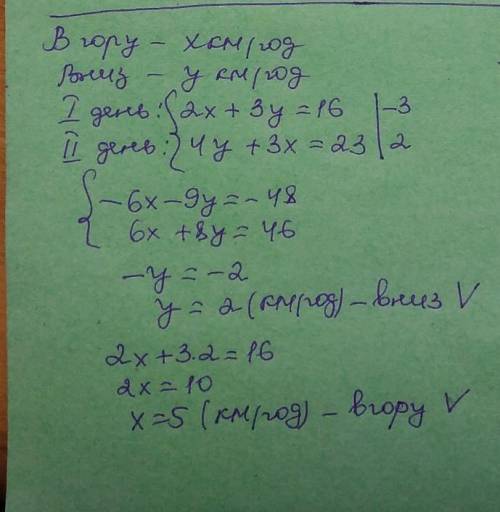 В гору – x км/год
Вниз – y км/год
I день: { 2x + 3y = 16 | –3
II день: { 4y + 3x = 23 | 2
{ –6x – 9y = –48
6x + 8y = 46
–y = –2
y = 2 (км/год) – вниз V
2x + 3·2 = 16
2x = 10
x = 5 (км/год) – вгору V